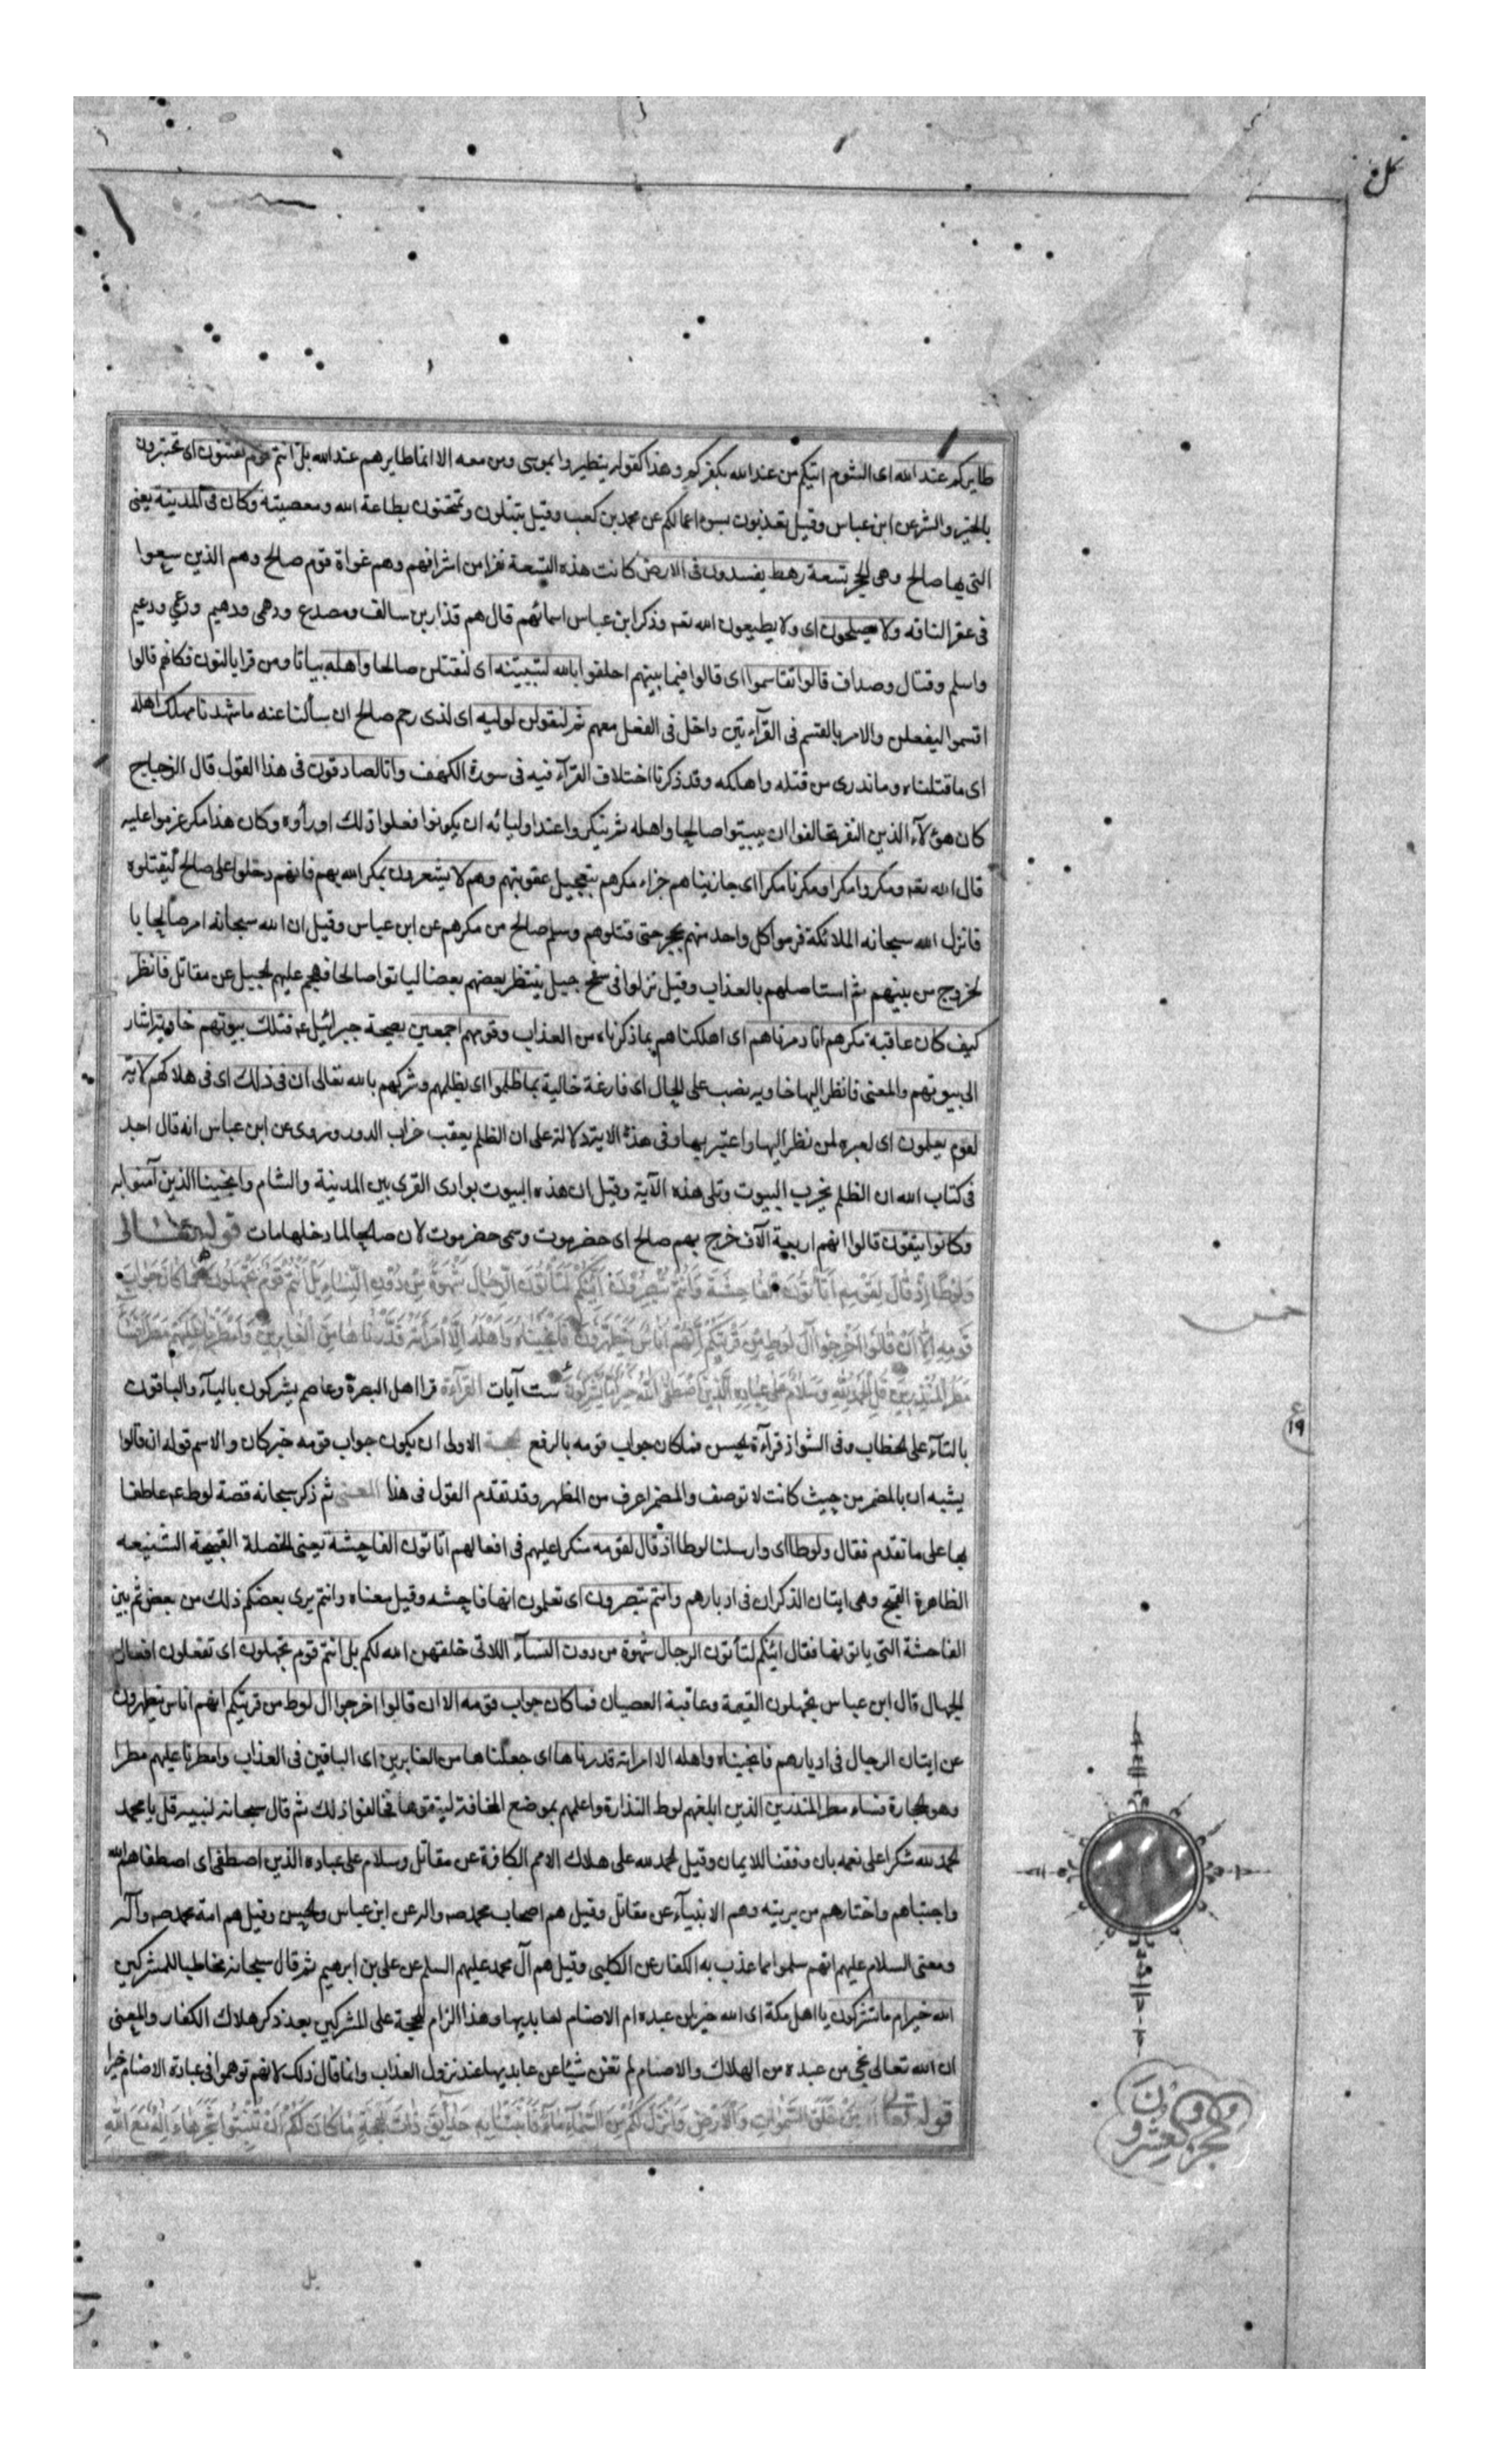 طايركم عند الله اى الشوم اتيكم من عند الله بكفركم وهذا كقوله يتطيروا بموسى ومن معه الا انما طايرهم عند الله بل انتم قوم تفتنون اى تختبرون
بالخير والشر عن ابن عباس وقيل تعذبون بسوء اعمالكم عن محمد بن كعب وقيل تبتلون وتمتحنون بطاعة الله ومعصيته وكان فى المدينة يعنى
التى بها صالح وهى الحجر تسعة رهط يفسدون فى الارض كانت هذه التسعة نفرا من اشرافهم وهم غواة قوم صالح وهم الذين سعوا
فى عقر الناقه ولا يصلحون اى ولا يطيعون الله تعه وذكر ابن عباس اسمائهم قال هم قذار بن سالف ومصدع ودهمى ودهيم ودعمى ودعيم
واسلم وقتال وصداف قالوا تقاسموا اى قالوا فيما بينهم احلفوا بالله لنبيتنه اى لنقتلن صالحا واهله بياتا ومن قرا بالنون فكانهم قالوا
اقسموا ليفعلن والامر بالقسم فى القرآءتين داخل فى الفعل معهم ثم لنقولن لوليه اى لذى رحم صالح ان سألنا عنه ما شهدنا مهلك اهله
اى ما قتلناه وما ندرى من قتله واهلكه وقد ذكرنا اختلاف القرآء فيه فى سورة الكهف وانا لصادقون فى هذا القول قال الزجاج
كان هؤلآء الذين النفر تحالفوا ان يبيتوا صالحا واهله ثم ينكروا عند اوليائه ان يكونوا فعلوا ذلك او رأوه وكان هذا مكر عزموا عليه
قال الله تعه ومكروا مكرا ومكرنا مكرا اى جازيناهم جزاء مكرهم بتعجيل عقوبتهم وهم لا يشعرون بمكر الله بهم فانهم دخلوا على صالح ليقتلوه
فانزل الله سبحانه الملائكة فرموا كل واحد منهم بحجر حتى قتلوهم وسلم صالح من مكرهم عن ابن عباس وقيل ان الله سبحانه امر صالحا با
لخروج من بينهم ثم استاصلهم بالعذاب وقيل نزلوا فى سفح جبل ينتظر بعضهم بعضا لياتوا صالحا فهجم عليهم الجبل عن مقاتل فانظر
كيف كان عاقبة مكرهم انا دمرناهم اى اهلكناهم بما ذكرناه من العذاب وقومهم اجمعين بصيحة جبرائيل ع فتلك بيوتهم خاوية اشار
الى بيوتهم والمعنى فانظر اليها خاويه نصب على الحال اى فارغة خالية بما ظلموا اى بظلمهم وشركهم بالله تعالى ان فى ذلك اى فى هلاكهم لاية
لقوم يعلمون اى لعبره لمن نظر اليها واعتبر بها وفى هذه الاية دلالة على ان الظلم يعقب خراب الدور وروى عن ابن عباس انه قال اجد
فى كتاب الله ان الظلم يخرب البيوت وتلى هذه الآية وقيل ان هذه البيوت بوادى القرى بين المدينة والشام وانجينا الذين آمنوا به
وكانوا يتقون قالوا انهم اربعة الآف خرج بهم صالح اى حضرموت وسمى حضرموت لان صالحا لما دخلها مات قوله تعالى
وَلُوطًا إِذْ قَالَ لِقَوْمِهِ أَتَأْتُونَ الْفَاحِشَةَ وَأَنْتُمْ تُبْصِرُونَ أَئِنَّكُمْ لَتَأْتُونَ الرِّجَالَ شَهْوَةً مِنْ دُونِ النِّسَاءِ بَلْ أَنْتُمْ قَوْمٌ تَجْهَلُونَ فَمَا كَانَ جَوَابَ
قَوْمِهِ إِلَّا أَنْ قَالُوا أَخْرِجُوا آلَ لُوطٍ مِنْ قَرْيَتِكُمْ إِنَّهُمْ أُنَاسٌ يَتَطَهَّرُونَ فَأَنْجَيْنَاهُ وَأَهْلَهُ إِلَّا امْرَأَتَهُ قَدَّرْنَاهَا مِنَ الْغَابِرِينَ وَأَمْطَرْنَا عَلَيْهِمْ مَطَرًا فَسَاءَ
مَطَرُ الْمُنْذَرِينَ قُلِ الْحَمْدُ لِلَّهِ وَسَلَامٌ عَلَى عِبَادِهِ الَّذِينَ اصْطَفَى اللَّهُ خَيْرٌ أَمَّا يُشْرِكُونَ ست آيات القرآءة قرا اهل البصرة وعاصم يشركون باليآء والباقون
بالتآء على الخطاب وفى الشواذ قرآءة الحسن فما كان جواب قومه بالرفع الحجة الاولى ان يكون جواب قومه خبر كان والاسم قوله ان قالوا
يشبه ان بالمضمر من حيث كانت لا توصف والمضمر اعرف من المظهر وقد تقدم القول فى هذا المعنى ثم ذكر سبحانه قصة لوط ع عاطفا
بها على ما تقدم فقال ولوطا اى وارسلنا لوطا اذ قال لقومه منكرا عليهم فى افعالهم اتاتون الفاحشة يعنى الخصلة القبيحة الشنيعه
الظاهرة القبح وهى ايتان الذكران فى ادبارهم وانتم تبصرون اى تعلمون انها فاحشه وقيل معناه وانتم يرى بعضكم ذلك من بعض ثم بين
الفاحشة التى ياتونها فقال ائنكم لتأتون الرجال شهوة من دون النسآء اللاتى خلقهن الله لكم بل انتم قوم تجهلون اى تفعلون افعال
الجهال قال ابن عباس تجهلون القيمة وعاقبة العصيان فما كان جواب قومه الا ان قالوا اخرجوا ال لوط من قريتكم انهم اناس يتطهرون
عن ايتان الرجال فى ادبارهم فانجيناه واهله الا امراته قدرناها اى جعلناها من الغابرين اى الباقين فى العذاب وامطرنا عليهم مطرا
وهو الحجارة فساء مطر المنذرين الذين ابلغهم لوط النذارة واعلمهم بموضع المخافة ليتقوها فخالفوا ذلك ثم قال سبحانه لنبيه قل يا محمد
الحمد لله شكرا على نعمه بان وفقنا للايمان وقيل الحمد لله على هلاك الامم الكافرة عن مقاتل وسلام على عباده الذين اصطفى اى اصطفاهم الله
واجتباهم واختارهم من بريته وهم الانبيآء عن مقاتل وقيل هم اصحاب محمد صه واله عن ابن عباس والحسن وقيل هم امة محمد صه وآله
ومعنى السلام عليهم انهم سلموا مما عذب به الكفار عن الكلبى وقيل هم آل محمد عليهم السلم عن على بن ابرهيم ثم قال سبحانه مخاطبا للمشركين
الله خير ام ما تشركون يا اهل مكة اى الله خير لمن عبده ام الاصنام لعابديها وهذا الزام للحجة على المشركين بعد ذكر هلاك الكفار والمعنى
ان الله تعالى نجى من عبده من الهلاك والاصنام لم تغن شيئا عن عابديها عند نزول العذاب وانما قال ذلك لانهم توهموا فى عبادة الاصنام خيرا
قوله تعا أَمَّنْ خَلَقَ السَّمٰوَاتِ وَالْأَرْضَ وَأَنْزَلَ لَكُمْ مِنَ السَّمَآءِ مَآءً فَأَنْبَتْنَا بِهِ حَدَائِقَ ذَاتَ بَهْجَةٍ مَا كَانَ لَكُمْ أَنْ تُنْبِتُوا شَجَرَهَا ءَإِلٰهٌ مَعَ اللَّهِ
خمس
ع
١٩
بل